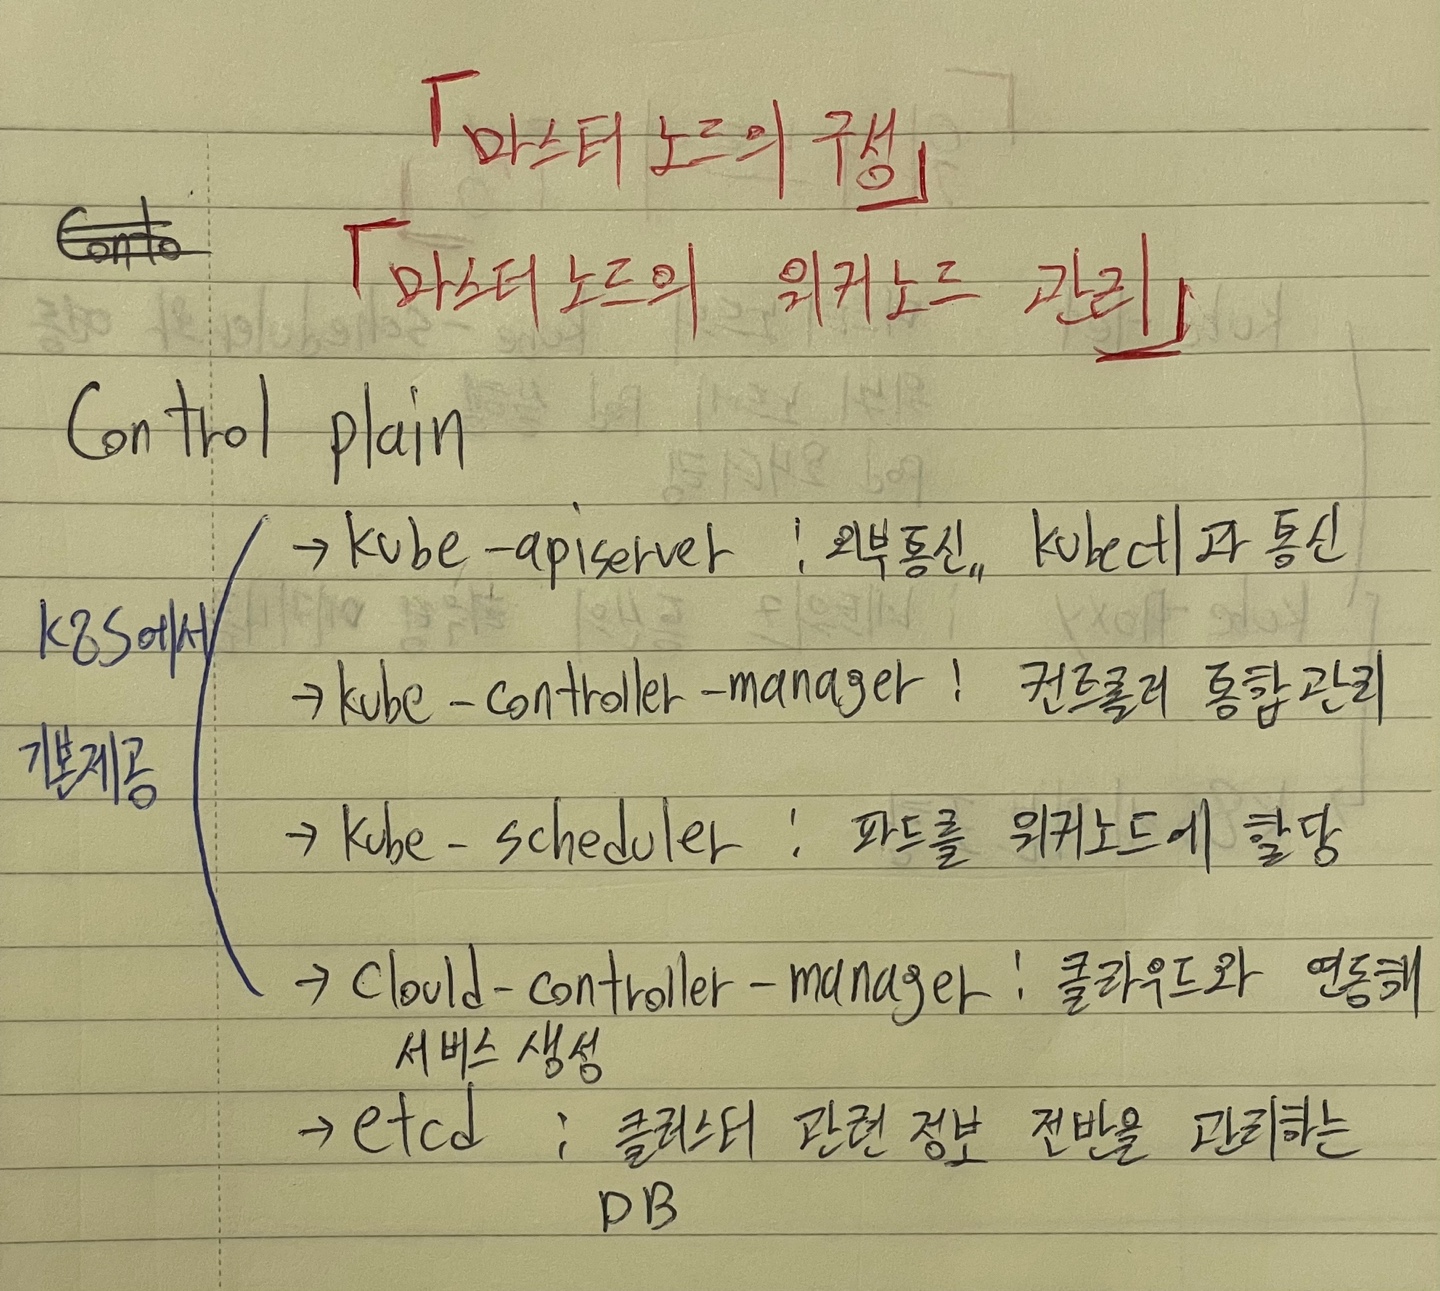 「마스터 노드의 구성」
Conto
「마스터 노드의 워커노드 관리」
Control plain
→ kube-apiserver : 외부통신,, kubectl과 통신
K8S에서
→ kube-controller-manager : 컨트롤러 통합관리
기본제공
→ kube-scheduler : 파드를 워커노드에 할당
→ Clould-controller-manager : 클라우드와 연동해
서비스 생성
→ etcd : 클러스터 관련 정보 전반을 관리하는
DB